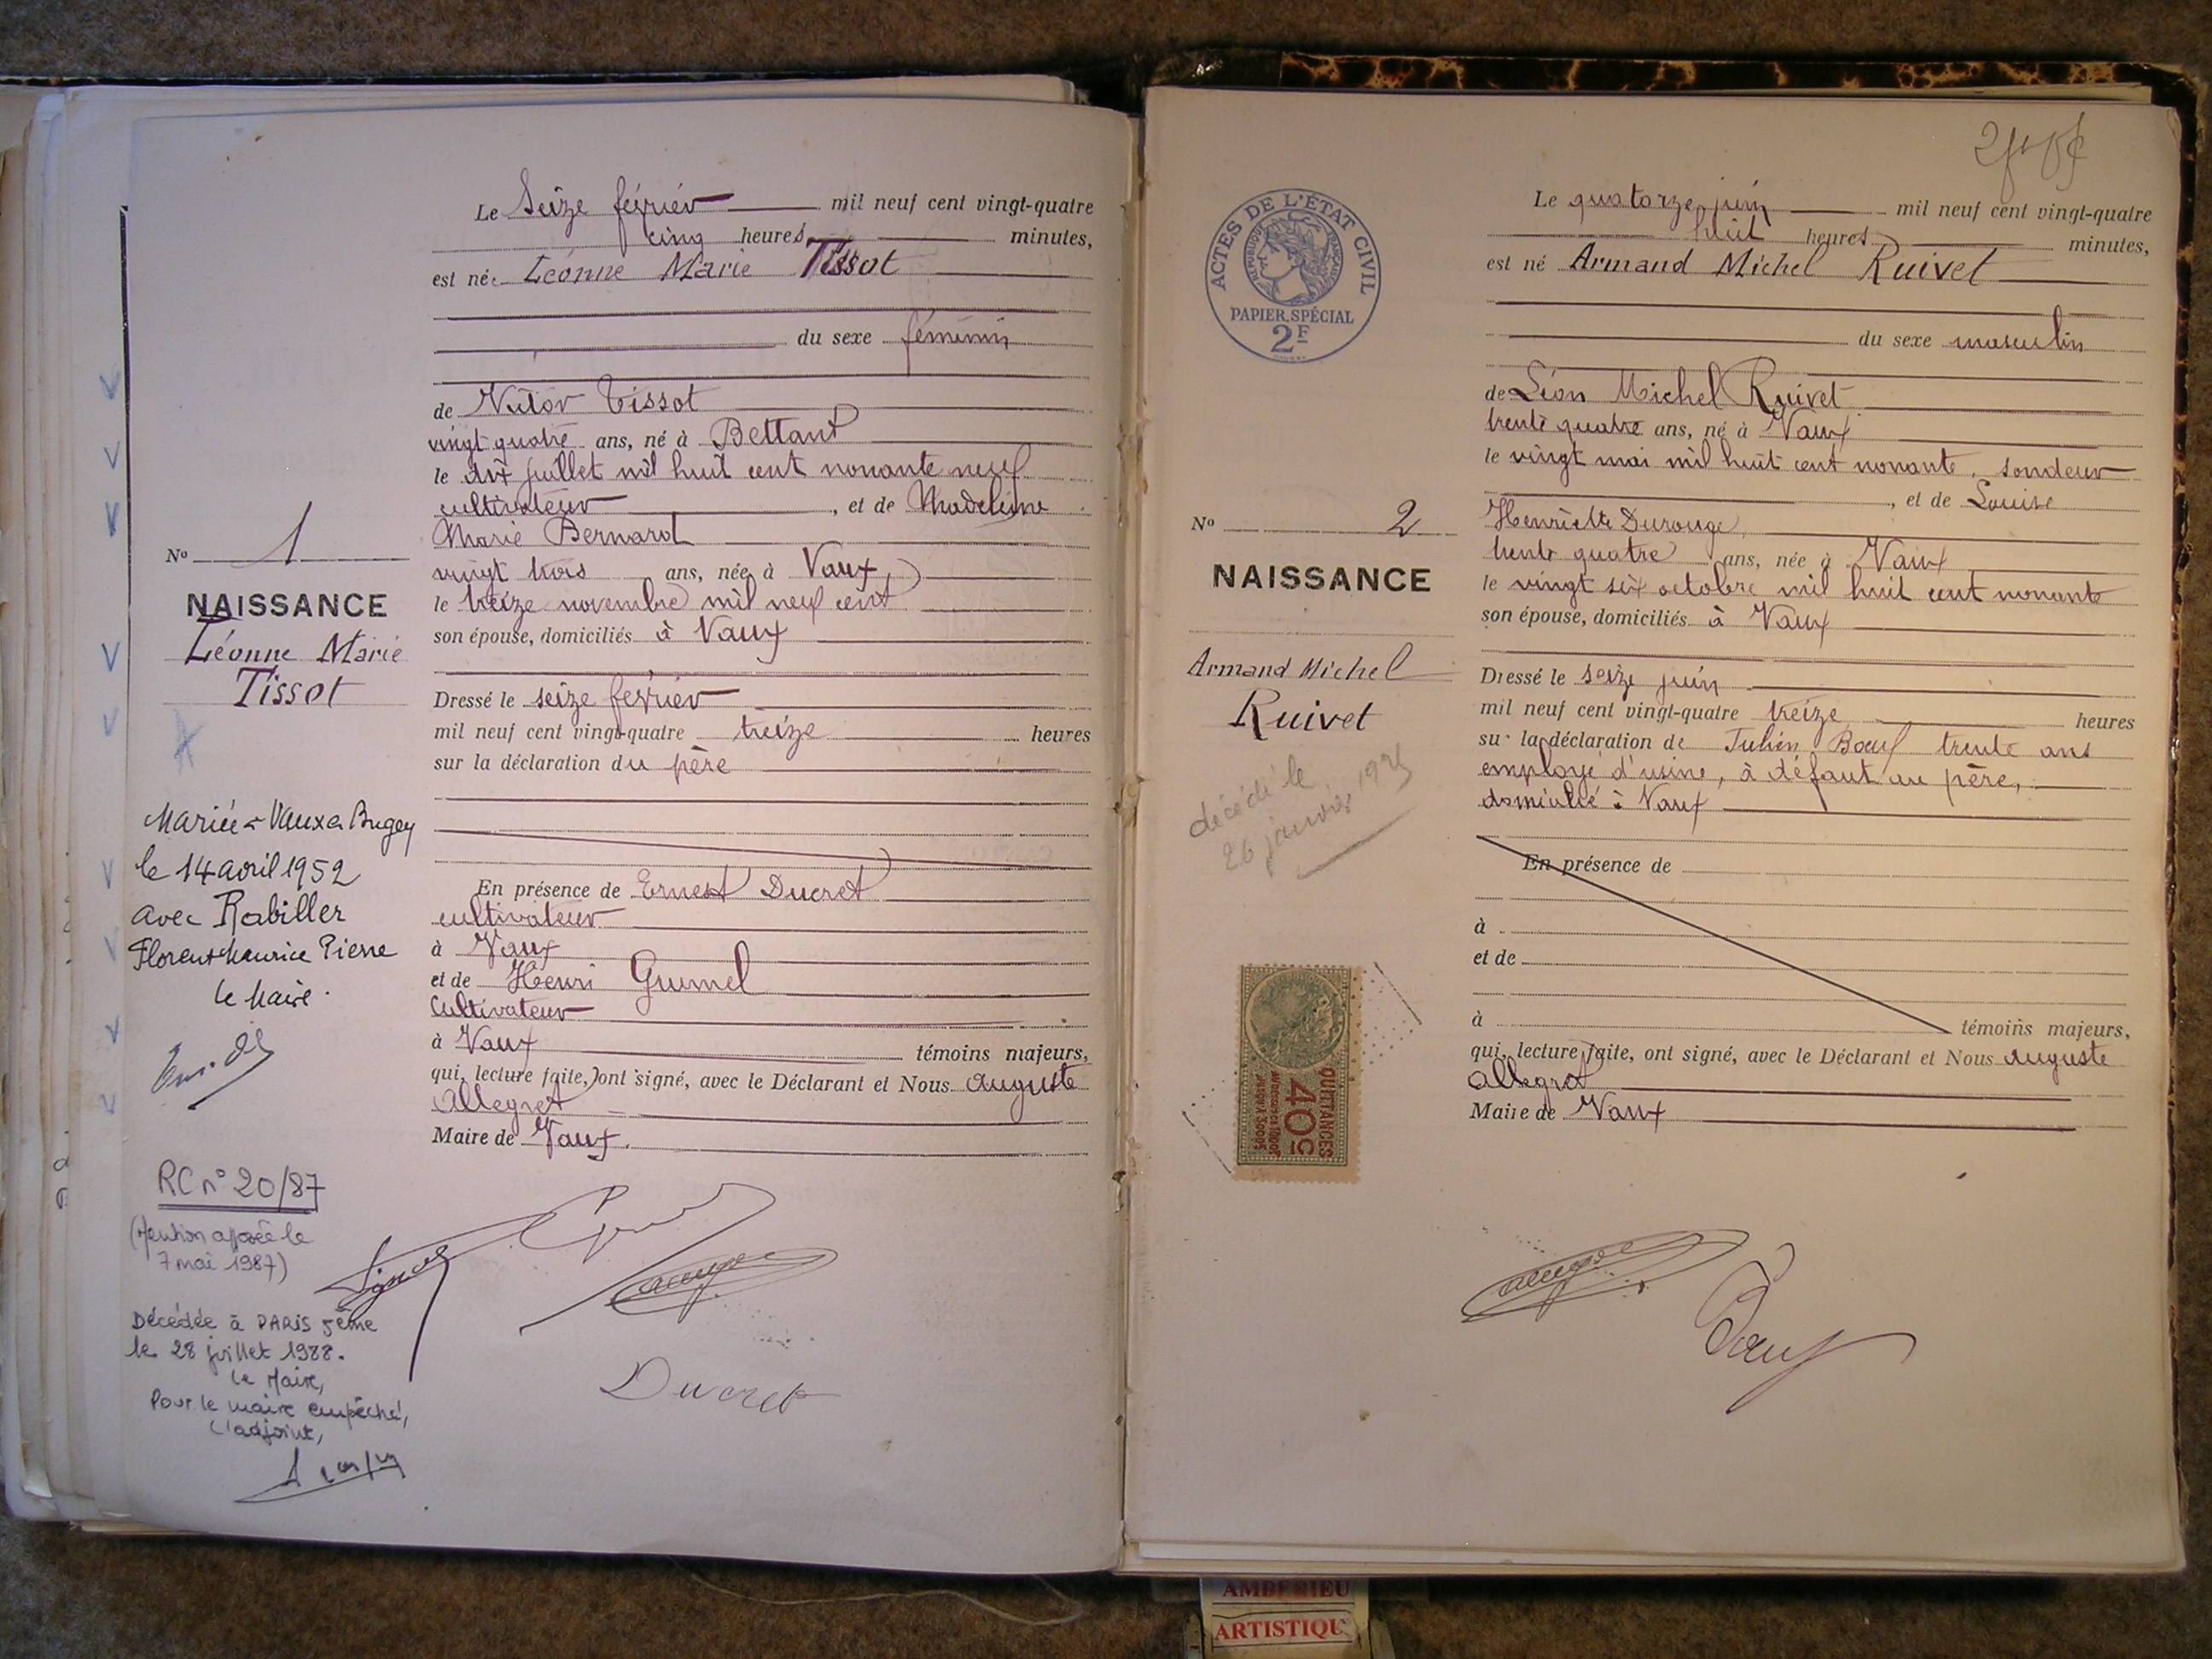 Le Seize février mil neuf cent vingt-quatre
cinq heures minutes,
est née Léonne Marie Tissot
du sexe féminin
de Victor Tissot
vingt quatre ans, né à Bettant
le dix juillet mil huit cent nonante neuf
cultivateur, et de Madeleine
Marie Bernard
vingt trois ans, née à Vaux,
le treize novembre mil neuf cent
son épouse, domiciliés à Vaux
Dressé le seize février
mil neuf cent vingt-quatre treize heures
sur la déclaration du père
En présence de Ernest Ducret
cultivateur
à Vaux
et de Henri Grumel
Cultivateur
à Vaux témoins majeurs,
qui, lecture faite, ont signé, avec le Déclarant et Nous Auguste
Allegret
Maire de Vaux.
Ducret
No 1
NAISSANCE
Léonne Marie
Tissot
Mariée à Vaux en Bugey
le 14 avril 1952
avec Rabiller
Florent Maurice Pierre
Le Maire.
RC n° 20/87
(Mention apposée le
7 mai 1987)
Décédée à PARIS 5ème
le 28 juillet 1988.
Le Maire,
Pour le maire empêché,
L'adjoint,
ACTES DE L'ÉTAT CIVIL
RÉPUBLIQUE FRANÇAISE
PAPIER SPÉCIAL
2F
No 2
NAISSANCE
Armand Michel
Ruivet
décédé le
26 janvier 1925
QUITTANCES
40c
Le quatorze juin mil neuf cent vingt-quatre
huit heures minutes,
est né Armand Michel Ruivet
du sexe masculin
de Léon Michel Ruivet
trente quatre ans, né à Vaux
le vingt mai mil huit cent nonante, sondeur
, et de Louise
Henriette Durouge,
trente quatre ans, née à Vaux
le vingt six octobre mil huit cent nonante
son épouse, domiciliés à Vaux
Dressé le seize juin
mil neuf cent vingt-quatre treize heures
sur la déclaration de Julien Bœuf trente ans
employé d'usine, à défaut du père,
domicilié à Vaux
En présence de
à
et de
à témoins majeurs,
qui, lecture faite, ont signé, avec le Déclarant et Nous Auguste
Allegret
Maire de Vaux
Bœuf
AMBERIEU
ARTISTIQU